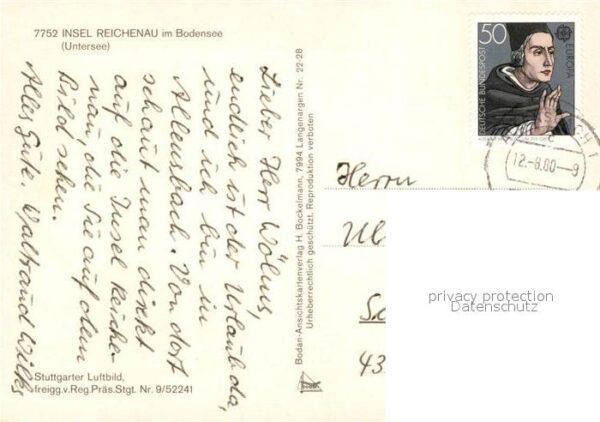 7752 INSEL REICHENAU im Bodensee
(Untersee)
Lieber Herr Wölms,
endlich ist der Urlaub da,
und ich bin in
Allensbach. Von dort
schaut man direkt
auf die Insel Reiche-
nau, die Sie auf dem
Bild sehen.
Alles Gute. Waltraud Wilks
Stuttgarter Luftbild,
freigg.v.Reg.Präs.Stgt. Nr. 9/52241
Bodan-Ansichtskartenverlag H. Bockelmann, 7994 Langenargen Nr. 22-28
Urheberrechtlich geschützt. Reproduktion verboten
50
DEUTSCHE BUNDESPOST
EUROPA
12.-8.80--9
Herrn
Ul
S
43
privacy protection
Datenschutz